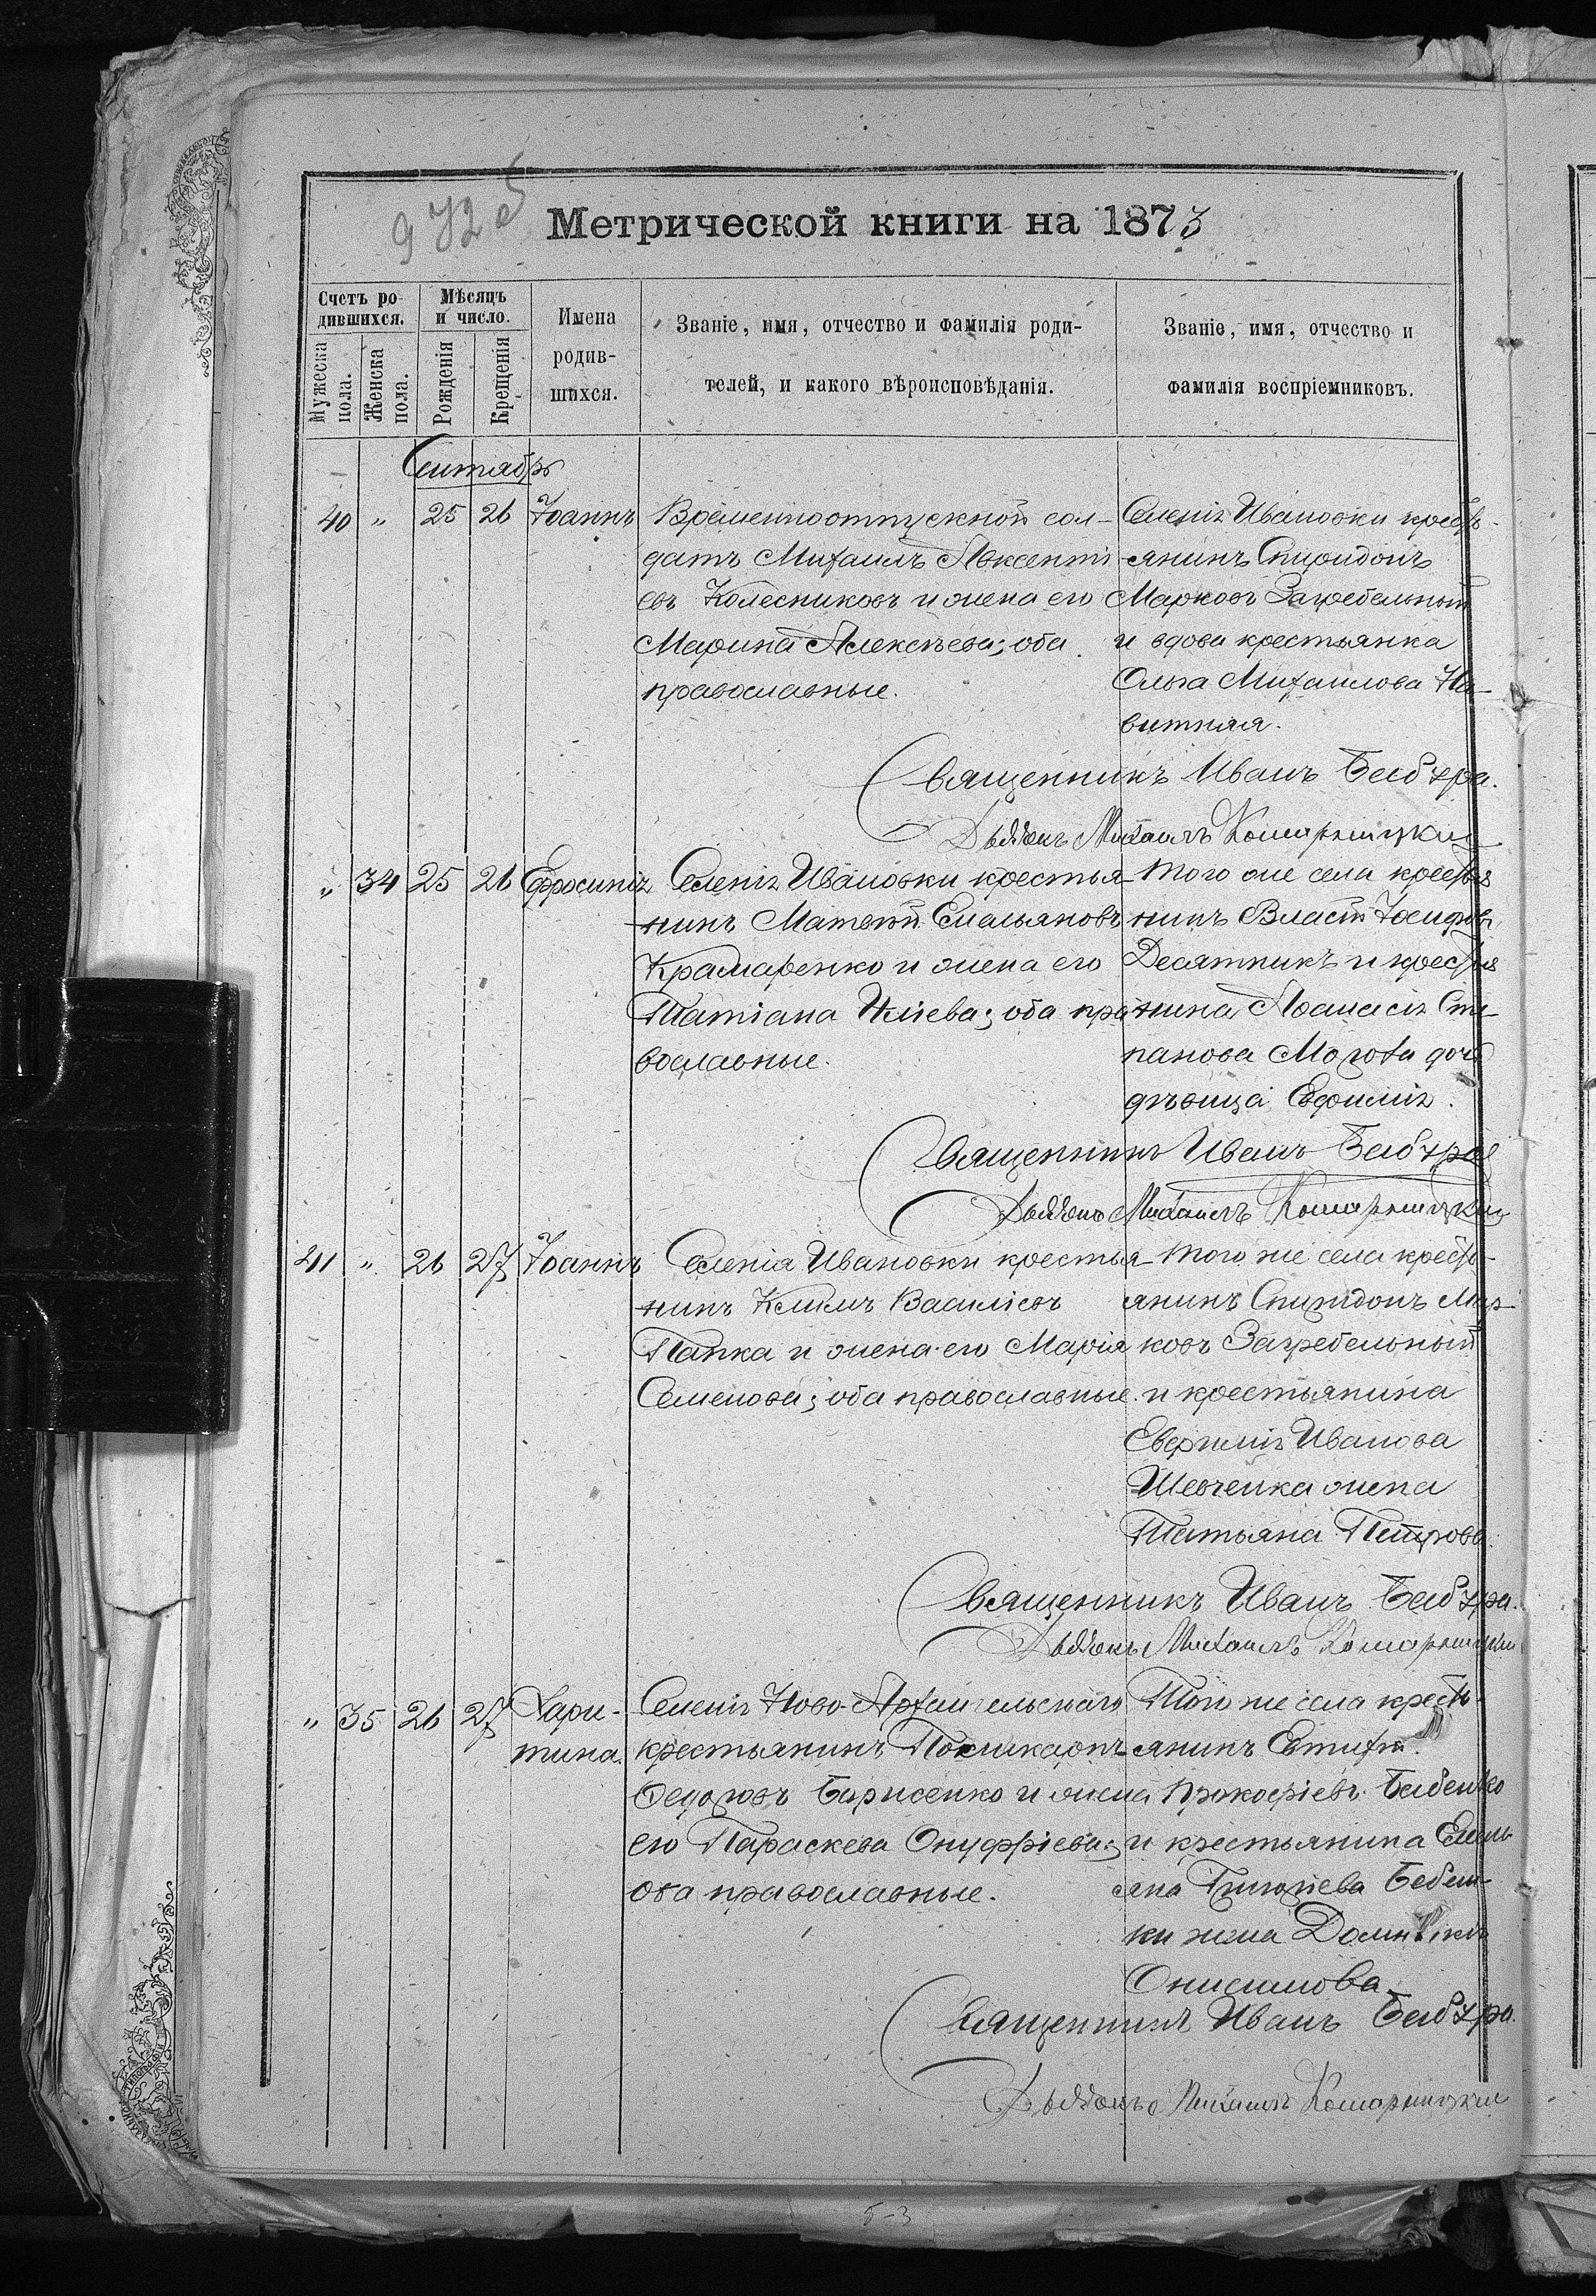 972 об
Метрической книги на 1873
Счетъ ро-
дившихся.
Мужеска
пола.
Женска
пола.
Мѣсяцъ
и число.
Рожденія
Крещенія
Имена
родив-
шихся.
Званіе, имя, отчество и фамилія роди-
телей, и какого вѣроисповѣданія.
Званіе, имя, отчество и
фамилія воспріемниковъ.
Сентябрь
40 " 25 26 Іоаннъ
Временноотпускной сол-
датъ Михаилъ Авксентi
евъ Колесниковъ и жена его
Марина Алексѣева; оба
православные.
Селенія Ивановки кресть-
янинъ Спиридонъ
Марковъ Загребельный
и вдова крестьянка
Ольга Михаилова
витная.
Священникъ Иванъ
Михаилъ Комарницкій
" 34 25 26 Ефросинія
Селенія Ивановки крестья
нинъ Матѳей Емельяновъ
Крамаренко и жена его
Татіана Иліева; оба пра
вославные.
Того же села крестья
нинъ Власій Іосифовъ
Десятникъ и крестья
нина Аѳанасія Сте-
панова дочь
дѣвица Евфимія.
Священникъ Иванъ
Михаилъ Комарницкій
41 " 26 27 Іоаннъ
Селенія Ивановки крестья
нинъ Климъ Василіевъ
Папка и жена его Марія
Семенова; оба православные.
Того же села кресть-
янинъ Спиридонъ Мар-
ковъ Загребельный
и крестьянина
Евфимія Иванова
Шевченка жена
Татьяна Петрова.
Священникъ Иванъ
Михаилъ Комарницкій
" 35 26 27 Хари-
тина.
Селенія Ново-Архангельскаго
крестьянинъ Поликарпъ
Ѳедоровъ Борисенко и жена
его Параскева Онуфріева;
оба православные.
Того же села кресть-
янинъ Евтихій
Прокофіевъ
и крестьянина Емель-
яна Григоріева
ки жена Домникія
Онисимова
Священникъ Иванъ
Михаилъ Комарницкій
5-3